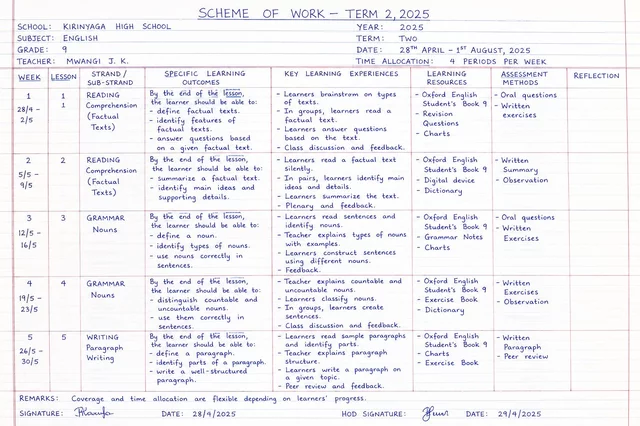 SCHEME OF WORK – TERM 2, 2025
SCHOOL: KIRINYAGA HIGH SCHOOL
YEAR: 2025
SUBJECT: ENGLISH
TERM: TWO
GRADE: 9
DATE: 28TH APRIL - 1ST AUGUST, 2025
TEACHER: MWANGI J. K.
TIME ALLOCATION: 4 PERIODS PER WEEK
WEEK
LESSON
STRAND /
SUB-STRAND
SPECIFIC LEARNING
OUTCOMES
KEY LEARNING EXPERIENCES
LEARNING
RESOURCES
ASSESSMENT
METHODS
REFLECTION
1
28/4 -
2/5
1
1
READING
Comprehension
(Factual
Texts)
By the end of the lesson,
the learner should be able to:
- define factual texts.
- identify features of
factual texts.
- answer questions based
on a given factual text.
- Learners brainstorm on types
of texts.
- In groups, learners read a
factual text.
- Learners answer questions
based on the text.
- Class discussion and feedback.
- Oxford English
Student's Book 9
- Revision
Questions
- Charts
- Oral questions
- Written
exercises
2
5/5 -
9/5
2
READING
Comprehension
(Factual
Texts)
By the end of the lesson,
the learner should be able to:
- summarize a factual text.
- identify main ideas and
supporting details.
- Learners read a factual text
silently.
- In pairs, learners identify main
ideas and details.
- Learners summarize the text.
- Plenary and feedback.
- Oxford English
Student's Book 9
- Digital device
- Dictionary
- Written
Summary
- Observation
3
12/5 -
16/5
3
GRAMMAR
Nouns
By the end of the lesson,
the learner should be able to:
- define a noun.
- identify types of nouns.
- use nouns correctly in
sentences.
- Learners read sentences and
identify nouns.
- Teacher explains types of nouns
with examples.
- Learners construct sentences
using different nouns.
- Feedback.
- Oxford English
Student's Book 9
- Grammar Notes
- Charts
- Oral questions
- Written
Exercises
4
19/5 -
23/5
4
GRAMMAR
Nouns
By the end of the lesson,
the learner should be able to:
- distinguish countable and
uncountable nouns.
- use them correctly in
sentences.
- Teacher explains countable and
uncountable nouns.
- Learners classify nouns.
- In groups, learners create
sentences.
- Class discussion and feedback.
- Oxford English
Student's Book 9
- Exercise Book
- Dictionary
- Written
Exercises
- Observation
5
26/5 -
30/5
5
WRITING
Paragraph
Writing
By the end of the lesson,
the learner should be able to:
- define a paragraph.
- identify parts of a paragraph.
- write a well-structured
paragraph.
- Learners read sample paragraphs
and identify parts.
- Teacher explains paragraph
structure.
- Learners write a paragraph on
a given topic.
- Peer review and feedback.
- Oxford English
Student's Book 9
- Charts
- Exercise Book
- Written
Paragraph
- Peer review
REMARKS: Coverage and time allocation are flexible depending on learners' progress.
SIGNATURE:
DATE: 28/4/2025
HOD SIGNATURE:
DATE: 29/4/2025